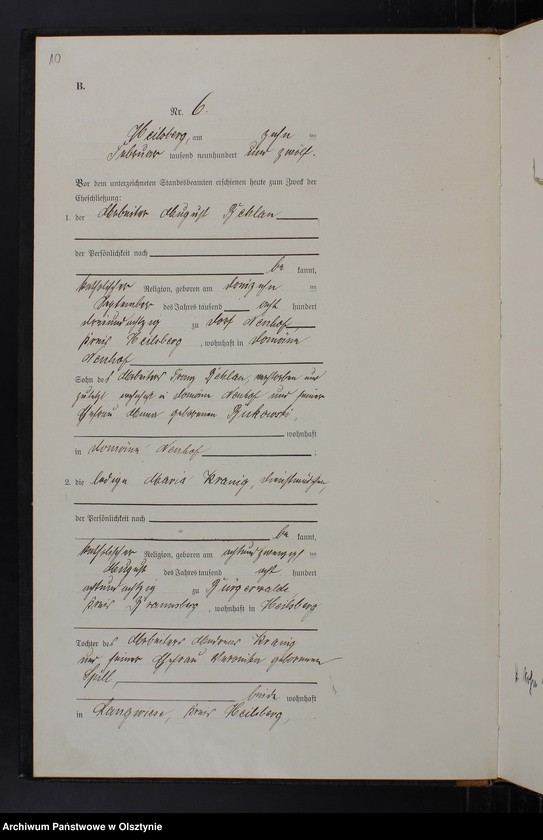 10
B.
Nr. 6.
Heilsberg, am zehn ten
Februar tausend neunhundert und zwölf.
Vor dem unterzeichneten Standesbeamten erschienen heute zum Zweck der
Eheschließung:
1. der Arbeiter August
der Persönlichkeit nach
be kannt,
katholischer Religion, geboren am dreizehn ten
September des Jahres tausend acht hundert
dreiundachtzig zu Dorf Neuhof,
Kreis Heilsberg, wohnhaft in Domäne
Neuhof
Sohn des Arbeiters Franz verstorben und
zuletzt wohnhaft in Domäne Neuhof und seiner
Ehefrau Anna geborenen Bukowski,
wohnhaft
in Domäne Neuhof ;
2. die ledige Maria Kranig, Dienstmädchen,
der Persönlichkeit nach
be kannt,
katholischer Religion, geboren am achtundzwanzigs ten
August des Jahres tausend acht hundert
achtundachtzig zu Bürgerwalde
Kreis Braunsberg, wohnhaft in Heilsberg
Tochter des Arbeiters Andreas Kranig
und seiner Ehefrau Veronika geborenen
Spill,
beide wohnhaft
in Langwiese, Kreis Heilsberg,
Archiwum Państwowe w Olsztynie